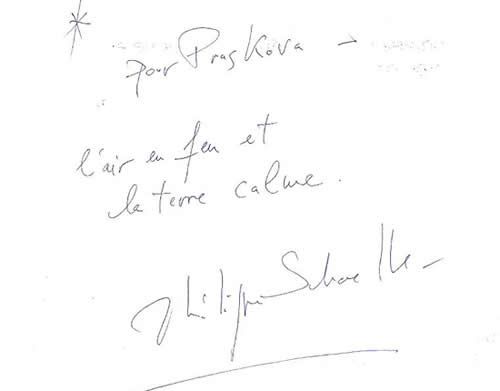 pour Praskova –
l'air en feu et
la terre calme.
Philippe